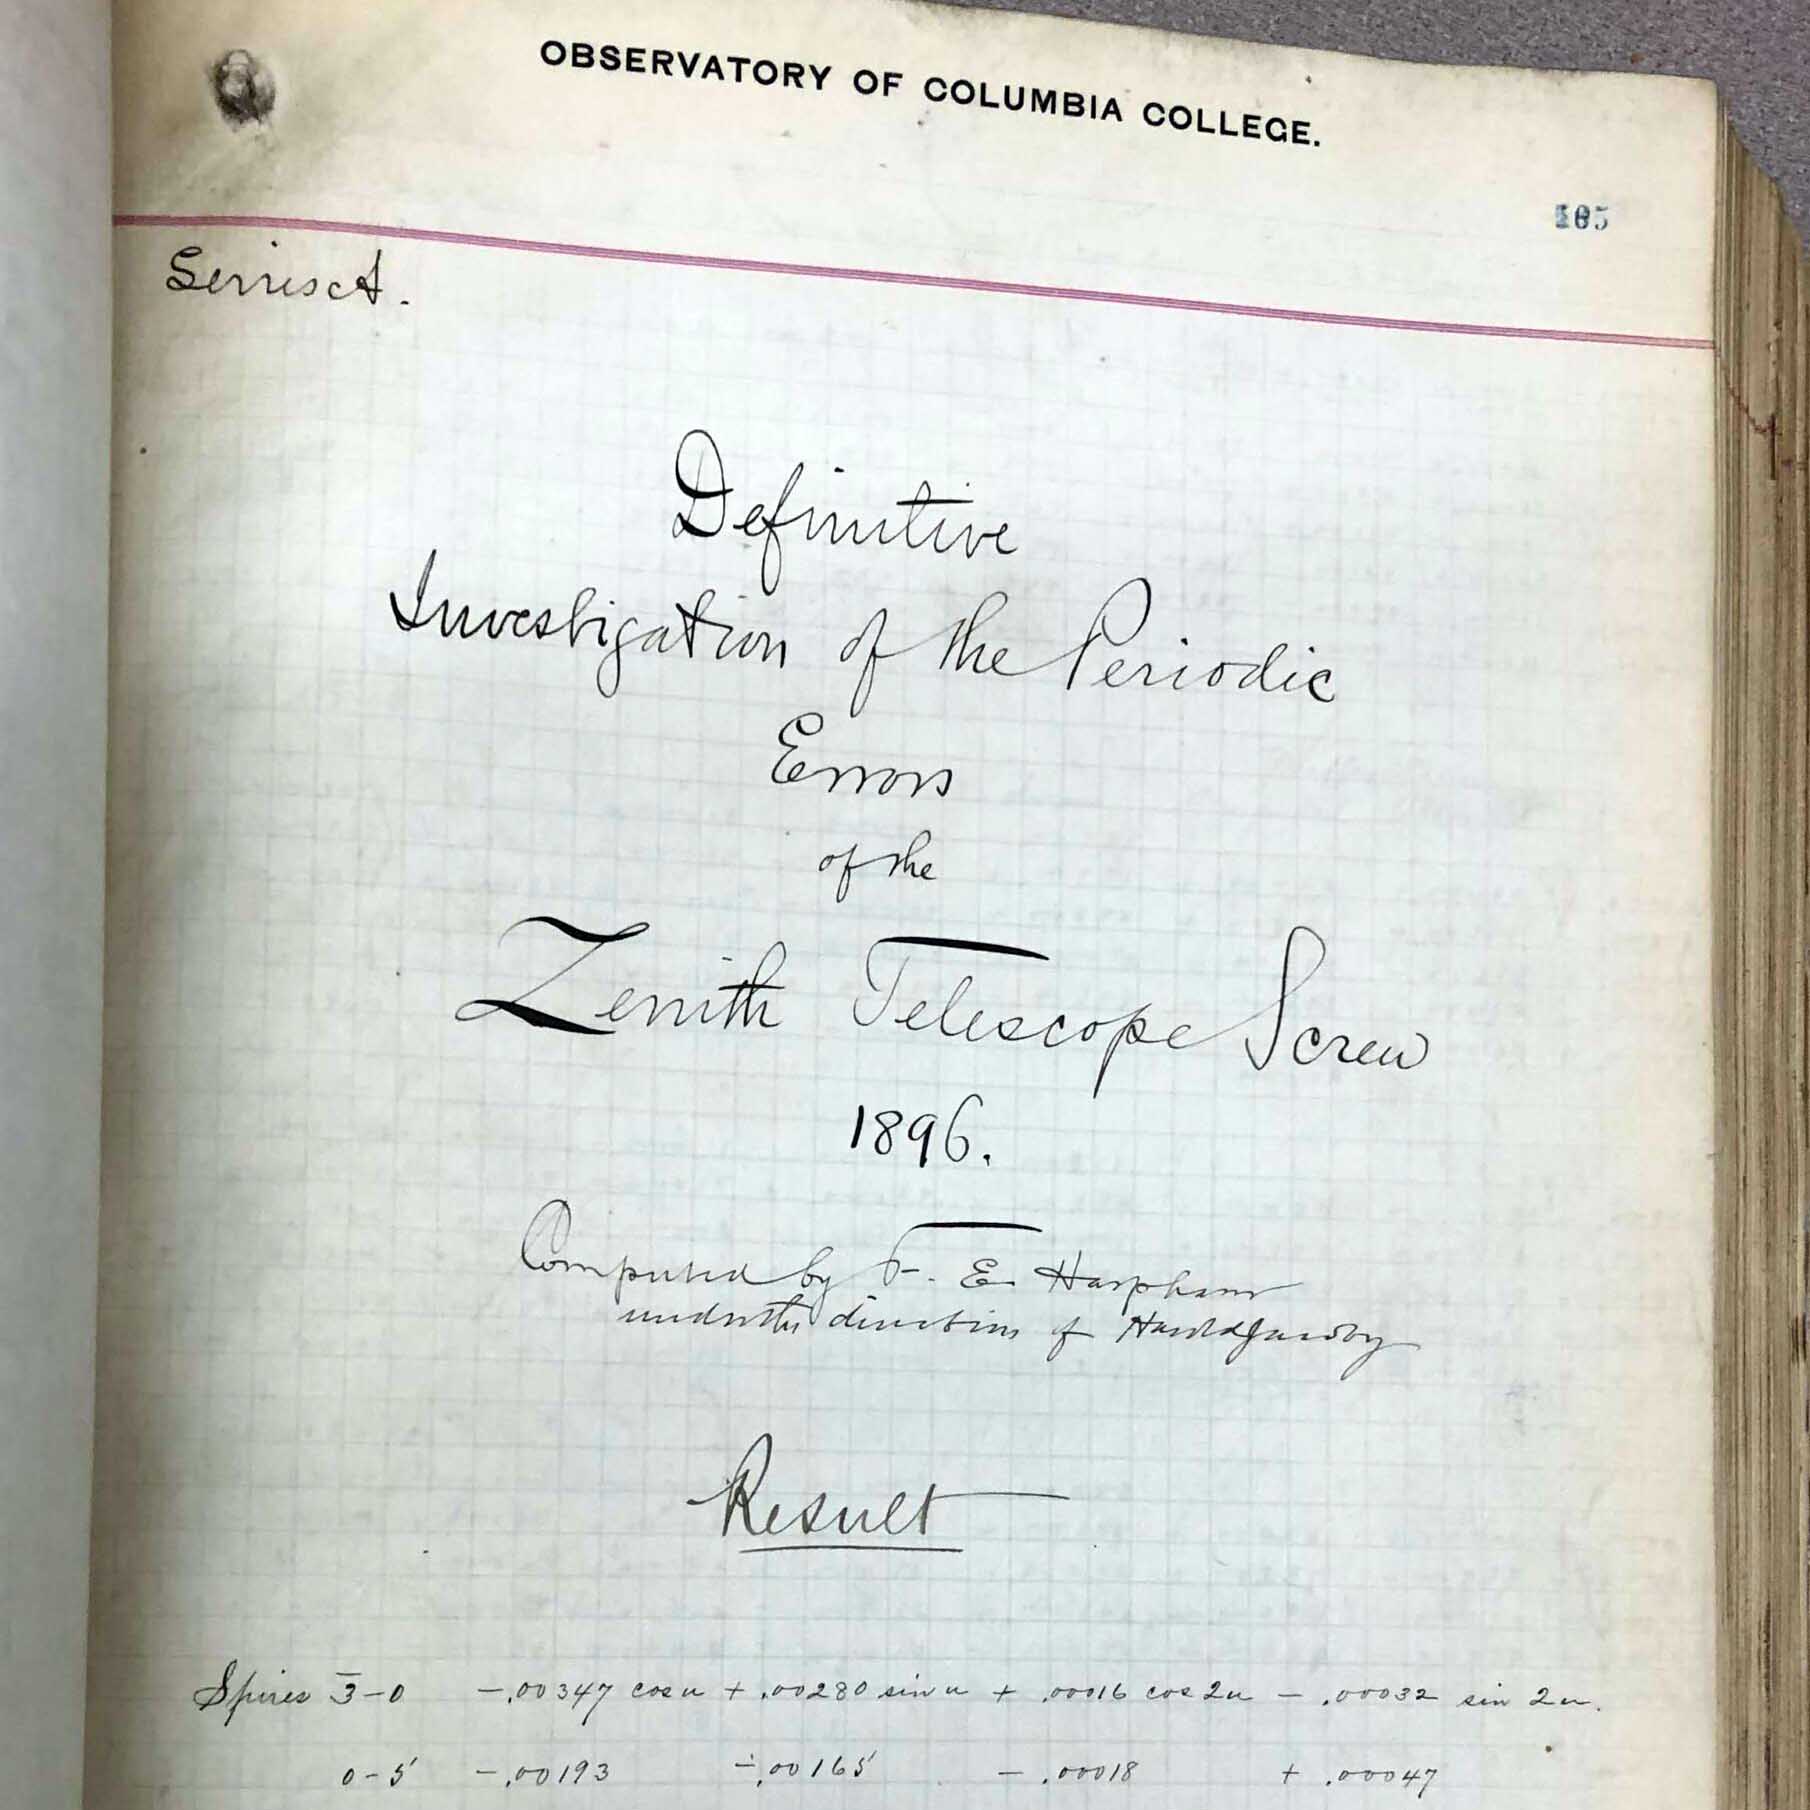 OBSERVATORY OF COLUMBIA COLLEGE.
105
Series A.
Definitive
Investigation of the Periodic
Errors
of the
Zenith Telescope Screw
1896.
Computed by F. E. Harpham
under the direction of Harold Jacoby
Result
Spires 3̅-0 -.00347 cos u + .00280 sin u + .00016 cos 2u - .00032 sin 2u.
0-5 -.00193 -.00165 - .00018 + .00047